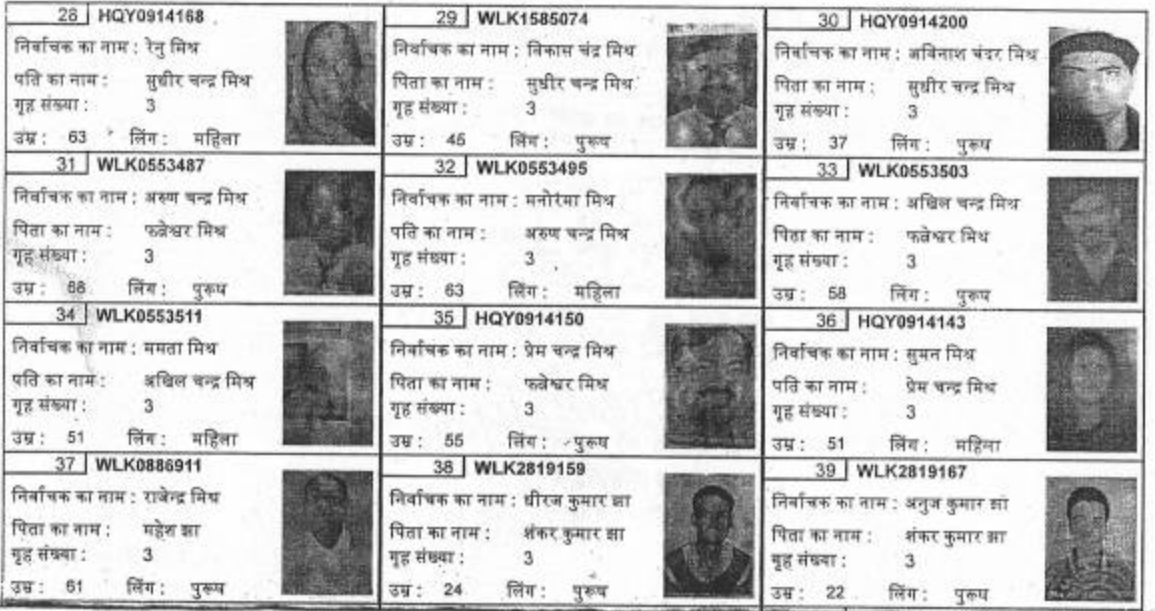 28 HQY0914168
निर्वाचक का नाम : रेनु मिश्र
पति का नाम : सुधीर चन्द्र मिश्र
गृह संख्या : 3
उम्र : 63 लिंग : महिला
29 WLK1585074
निर्वाचक का नाम : विकास चंद्र मिश्र
पिता का नाम : सुधीर चन्द्र मिश्र
गृह संख्या : 3
उम्र : 45 लिंग : पुरूष
30 HQY0914200
निर्वाचक का नाम : अविनाश चंदर मिश्र
पिता का नाम : सुधीर चन्द्र मिश्र
गृह संख्या : 3
उम्र : 37 लिंग : पुरूष
31 WLK0553487
निर्वाचक का नाम : अरुण चन्द्र मिश्र
पिता का नाम : फत्नेश्वर मिश्र
गृह संख्या : 3
उम्र : 68 लिंग : पुरूष
32 WLK0553495
निर्वाचक का नाम : मनोरमा मिश्र
पति का नाम : अरुण चन्द्र मिश्र
गृह संख्या : 3
उम्र : 63 लिंग : महिला
33 WLK0553503
निर्वाचक का नाम : अखिल चन्द्र मिश्र
पिता का नाम : फत्नेश्वर मिश्र
गृह संख्या : 3
उम्र : 58 लिंग : पुरूष
34 WLK0553511
निर्वाचक का नाम : ममता मिश्र
पति का नाम : अखिल चन्द्र मिश्र
गृह संख्या : 3
उम्र : 51 लिंग : महिला
35 HQY0914150
निर्वाचक का नाम : प्रेम चन्द्र मिश्र
पिता का नाम : फत्नेश्वर मिश्र
गृह संख्या : 3
उम्र : 55 लिंग : पुरूष
36 HQY0914143
निर्वाचक का नाम : सुमन मिश्र
पति का नाम : प्रेम चन्द्र मिश्र
गृह संख्या : 3
उम्र : 51 लिंग : महिला
37 WLK0886911
निर्वाचक का नाम : राजेन्द्र मिश्र
पिता का नाम : महेश झा
गृह संख्या : 3
उम्र : 61 लिंग : पुरूष
38 WLK2819159
निर्वाचक का नाम : धीरज कुमार झा
पिता का नाम : शंकर कुमार झा
गृह संख्या : 3
उम्र : 24 लिंग : पुरूष
39 WLK2819167
निर्वाचक का नाम : अनुज कुमार झा
पिता का नाम : शंकर कुमार झा
गृह संख्या : 3
उम्र : 22 लिंग : पुरूष